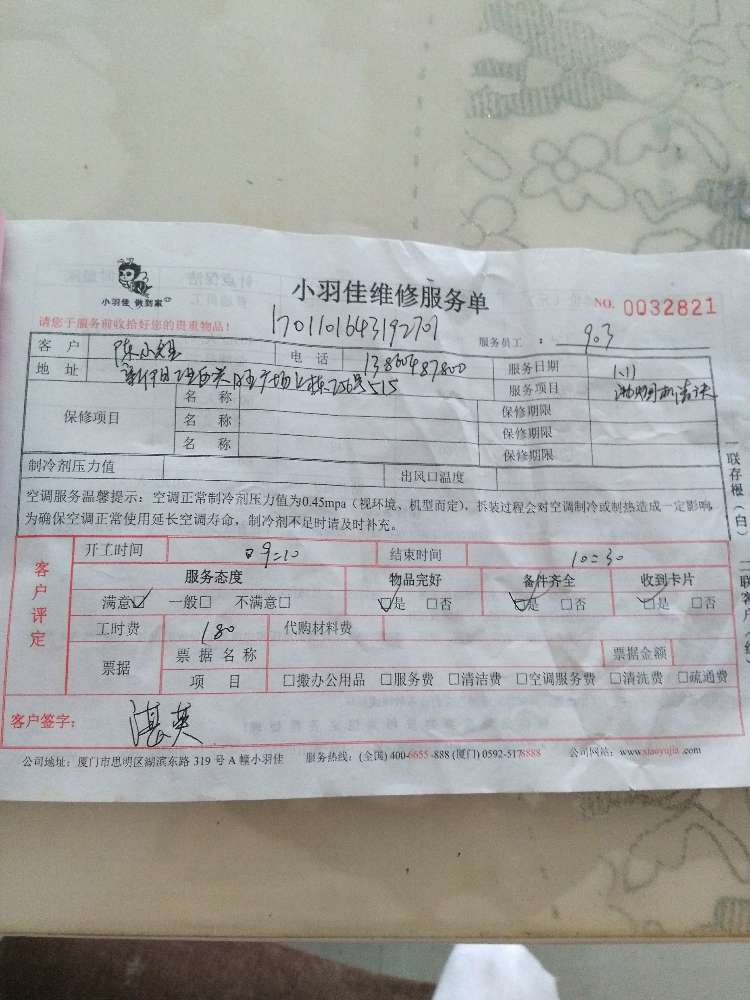 小羽佳 做到家
小羽佳维修服务单
NO. 0032821
请您于服务前收拾好您的贵重物品!
1701101643192701
服务员工: 903
客户 陈小 电话 13860487800 服务日期 1.11
地址 广场 515 服务项目 油烟机清洗
保修项目 名称 保修期限
名称 保修期限
名称 保修期限
制冷剂压力值 出风口温度
空调服务温馨提示:空调正常制冷剂压力值为0.45mpa(视环境、机型而定),拆装过程会对空调制冷或制热造成一定影响,
为确保空调正常使用延长空调寿命,制冷剂不足时请及时补充。
客户评定
开工时间 9:10 结束时间 10:30
服务态度 物品完好 备件齐全 收到卡片
满意☑ 一般□ 不满意□ ☑是 □否 ☑是 □否 ☑是 □否
工时费 180 代购材料费
票据 票据名称 票据金额
项目 □搬办公用品 □服务费 □清洁费 □空调服务费 □清洗费 □疏通费
客户签字: 湛英
公司地址:厦门市思明区湖滨东路 319 号 A 幢小羽佳 服务热线:(全国) 400-6655-888 (厦门) 0592-5178888 公司网站:www.xiaoyujia.com
一联存根(白)
二联客户